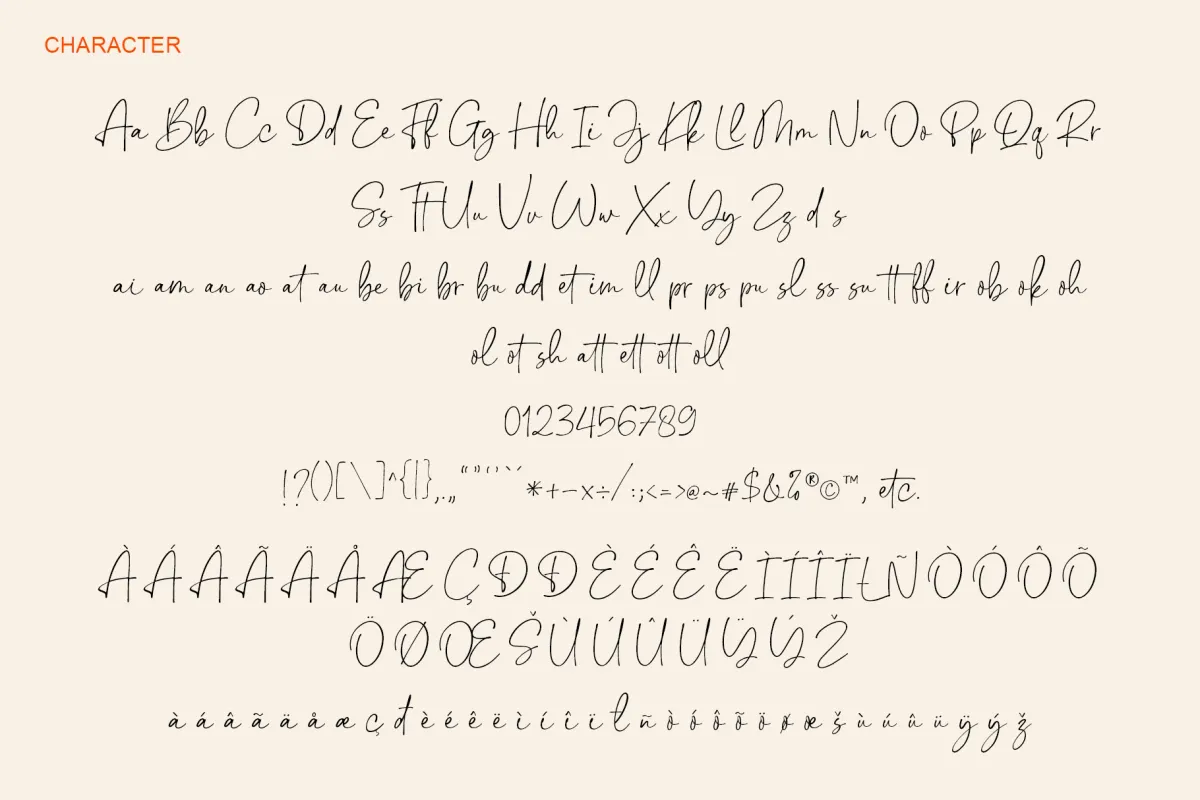 CHARACTER
Aa Bb Cc Dd Ee Ff Gg Hh Ii Jj Kk Ll Mm Nn Oo Pp Qq Rr
Ss Tt Uu Vv Ww Xx Yy Zz d s
ai am an ao at au be bi br bu dd et im ll pr ps pu sl ss su tt ff ir ob ok oh
ol ot sh att ett ott oll
0123456789
!?()[\]^{|},.„“”‘’`´*+−×÷/:;<=>@~#$&%®©™, etc.
ÀÁÂÃÄÅÆÇĐÐÈÉÊËÌÍÎÏŁÑÒÓÔÕ
ÖØŒŠÙÚÛÜŸÝŽ
à á â ã ä å æ ç đ è é ê ë ì í î ï ł ñ ò ó ô õ ö ø œ š ù ú û ü ÿ ý ž